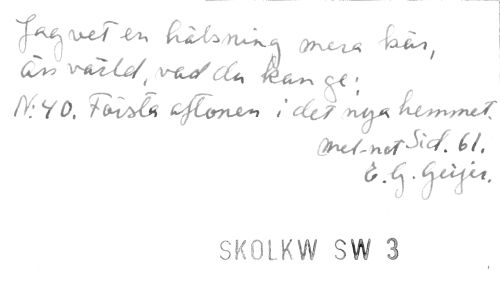 Jag vet en hälsning mera kär,
än värld, vad du kan ge;
N:40. Första aftonen i det nya hemmet.
mel-not Sid. 61.
E. G. Geijer.
SKOLKW SW 3